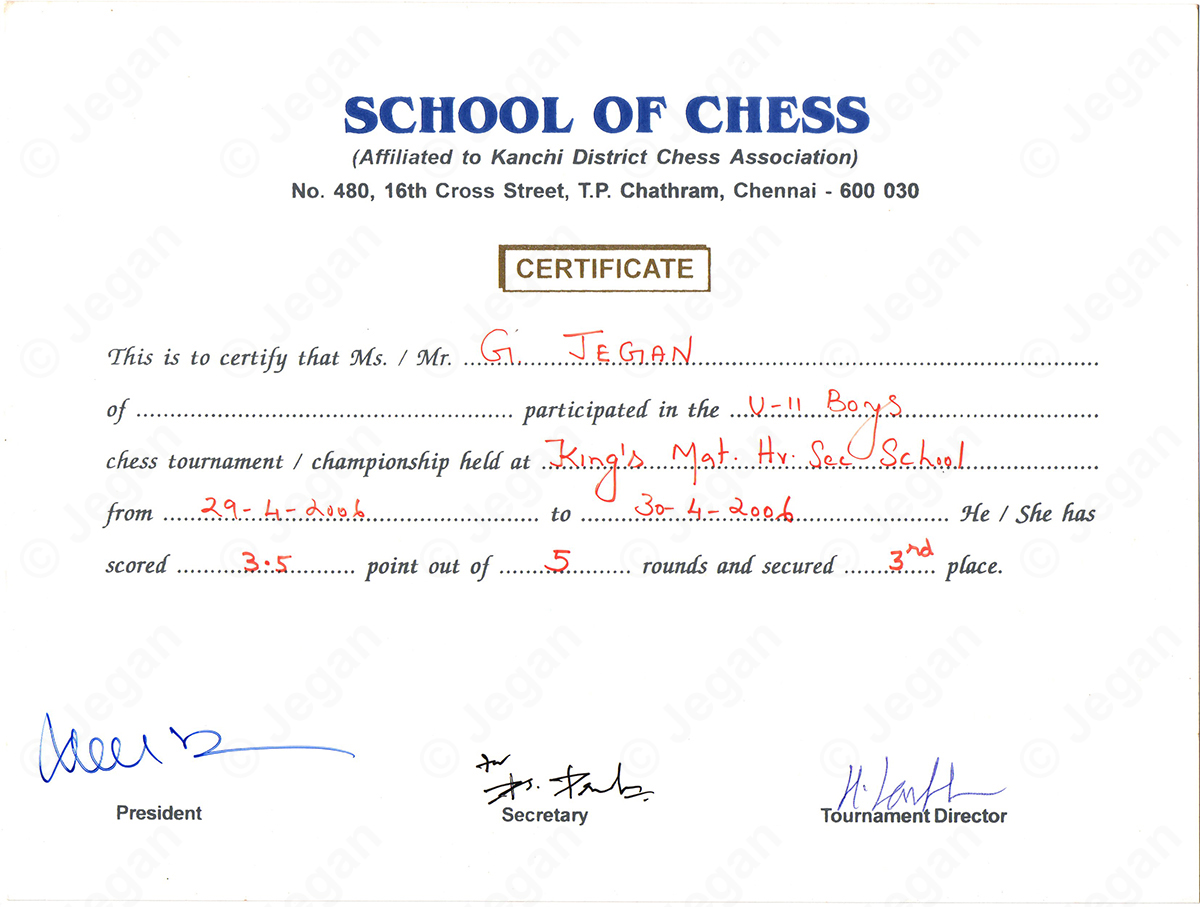 SCHOOL OF CHESS
(Affiliated to Kanchi District Chess Association)
No. 480, 16th Cross Street, T.P. Chathram, Chennai - 600 030
CERTIFICATE
This is to certify that Ms. / Mr. G. JEGAN
of ........ participated in the U-11 Boys
chess tournament / championship held at King's Mat. Hr. Sec School
from 29-4-2006 to 30-4-2006 He / She has
scored 3.5 point out of 5 rounds and secured 3rd place.
for
President Secretary Tournament Director
© Jegan